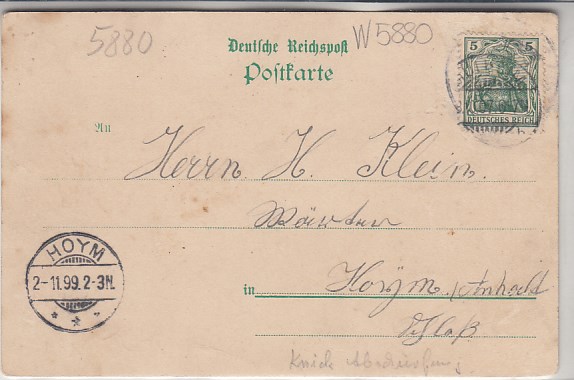 5880
W5880
Deutsche Reichspost
Postkarte
5 5
DEUTSCHES REICH
An
Herrn H. Klein.
Wärter
in Hoÿm /Anhalt
Schloß
HOYM
2-11.99.2-3N.
Knick